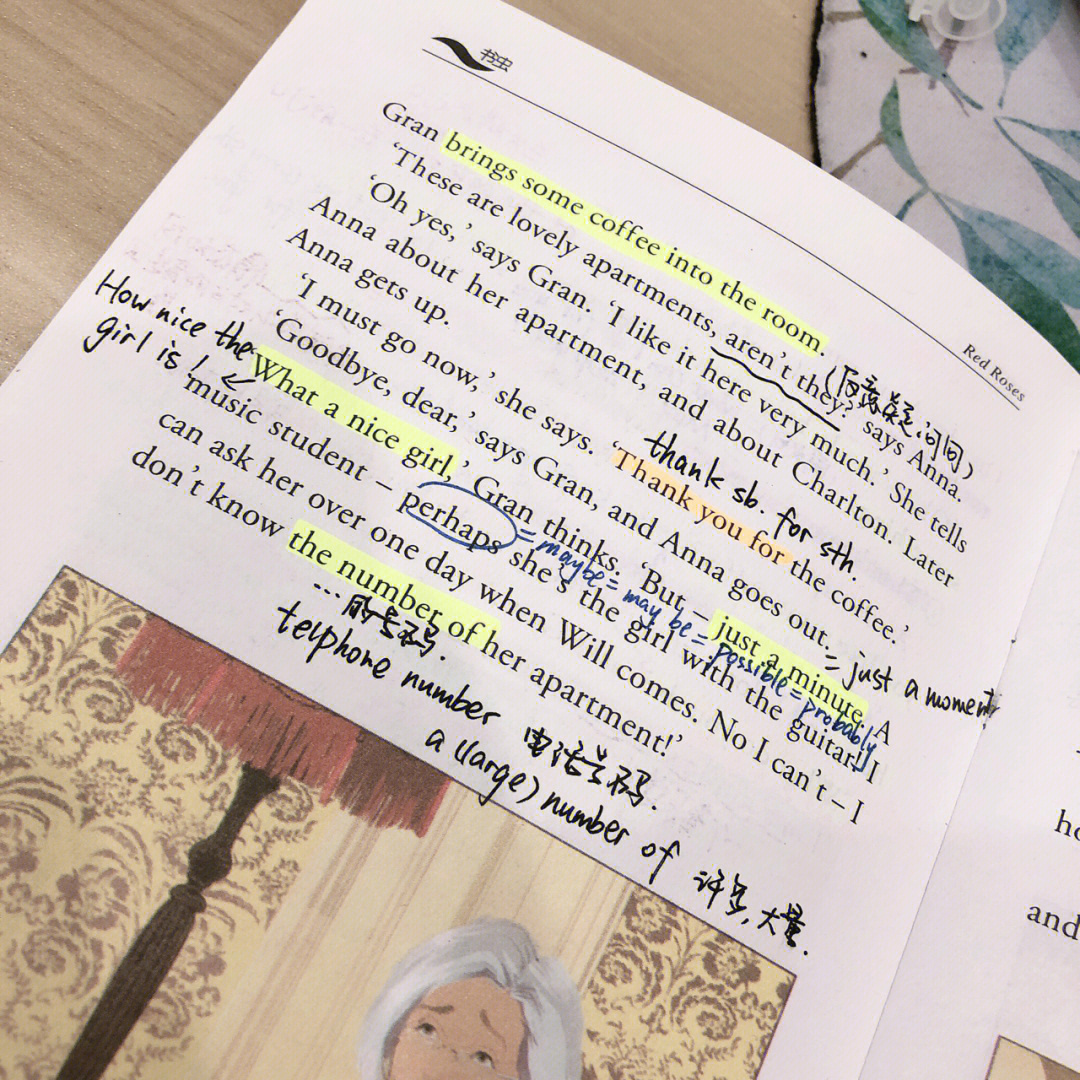 书虫
Red Roses
Gran brings some coffee into the room.
‘These are lovely apartments, aren’t they?’ says Anna.
(反意疑问句)
‘Oh yes,’ says Gran. ‘I like it here very much.’ She tells
Anna about her apartment, and about Charlton. Later
Anna gets up.
thank sb. for sth.
‘I must go now,’ she says. ‘Thank you for the coffee.’
‘Goodbye, dear,’ says Gran, and Anna goes out.
How nice the
girl is!
‘What a nice girl,’ Gran thinks. ‘But – just a minute. A
= just a moment
music student – perhaps she’s the girl with the guitar! I
= maybe = may be = possible = probably
can ask her over one day when Will comes. No I can’t – I
don’t know the number of her apartment!’
...的号码.
telphone number 电话号码.
a (large) number of 许多,大量.
ho
and